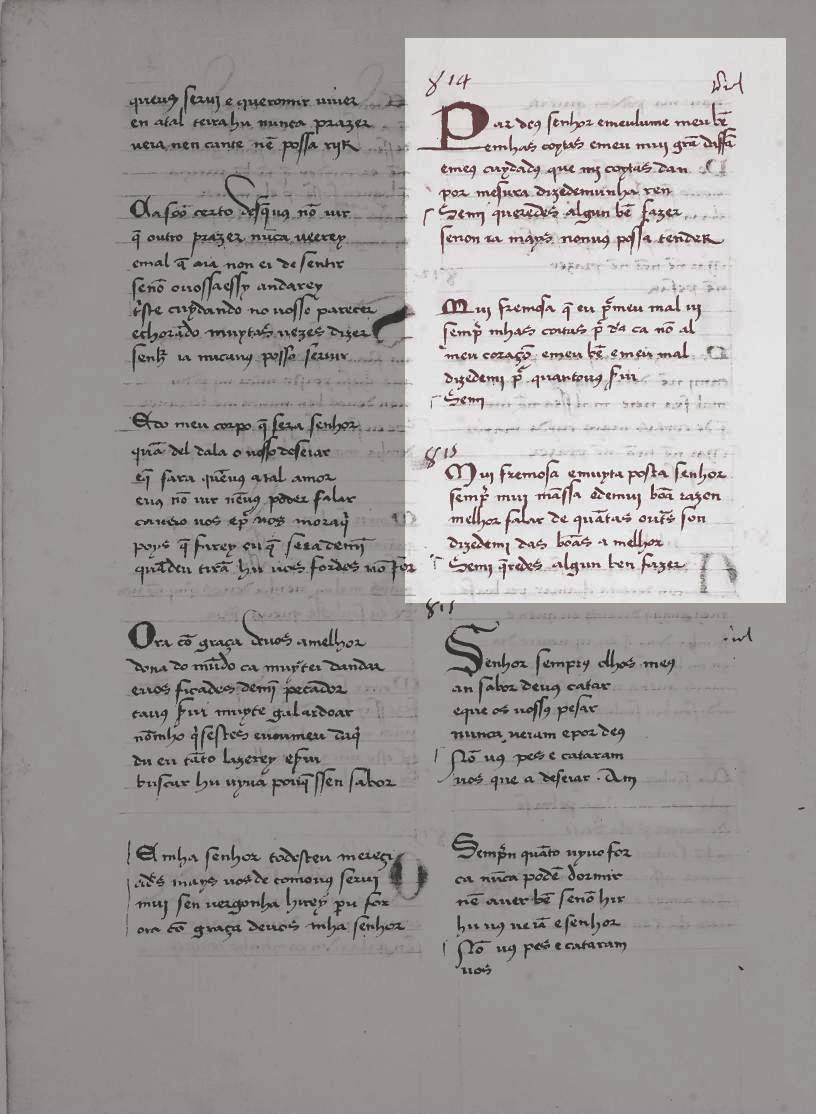 queuꝯ serui e queromir uiuer
en atal terra hu nunca prazer
ueia nen cante nẽ possa rijr
certo nõ uir
q̃ outro prazer nũca ueerey
emal q̃ aia non ei de sentir
senõ ouossa assy andarey
cuydando no uosso parecer
echorãdo muytas uezes dizer
senhˀ ia nũcauꝯ posso seruir
E do meu corpo q̃ sera senhor
quã del dala o uosso deseiar
eq̃ fara quẽuꝯ atal amor
euꝯ nõ uir nẽuꝯ poder falar
poys q̃ farey eu q̃ sera demĩ
quãdeu tirã hu uos fordes nõ for
Ora cõ graça deuos amelhor
dona do mũdo ca muyteỉ dandar
euos ficades demĩ pecador
muyte galardoar
du eu tãto lazerey
buscar hu uyua sen sabor
A mha senhor todesteu mereçi
a dẽs mays uos de comouꝯ serui
mui sen uergonha hirey for
ora cõ graça deuos mha senhor
814
Par deꝯ senhor emeulume meu bẽ
e mhas coytas e meu mui grã daffã
emeꝯ cuydadꝯ que mi coytas dan
por mesura dizedemunha ren
Semi queredes algun bẽ fazer
senon ia mays nonuꝯ possa tender
Mui fremosa q̃ eu pˀmeu mal ui
sempˀ mhas coitas pˀ dˢ ca nõ al
meu coraçõ emeu bẽ emeu mal
dizedemi pˀ quantouꝯ serui
Semi
815
Mui fremosa emuyta posta senhor
sempˀ mui mãssa odemui boã razon
melhor falar de quãtas outˢ son
dizedemi das boãs a melhor
Semi q̃redes algun ben fazer
Senhor semprꝯ olhos meꝯ
an sabor deuꝯ catar
eque os uossꝯ pesar
nunca ueiam epor deꝯ
Nõ uꝯ pes e cataram
uos que a deseiar . Am
Sempˀn quãto uyuo for
ca nũca podẽ dormir
nẽ auer bẽ senõ hir
hu uꝯ ueiã esenhor
Nõ uꝯ pes e cataram
uos